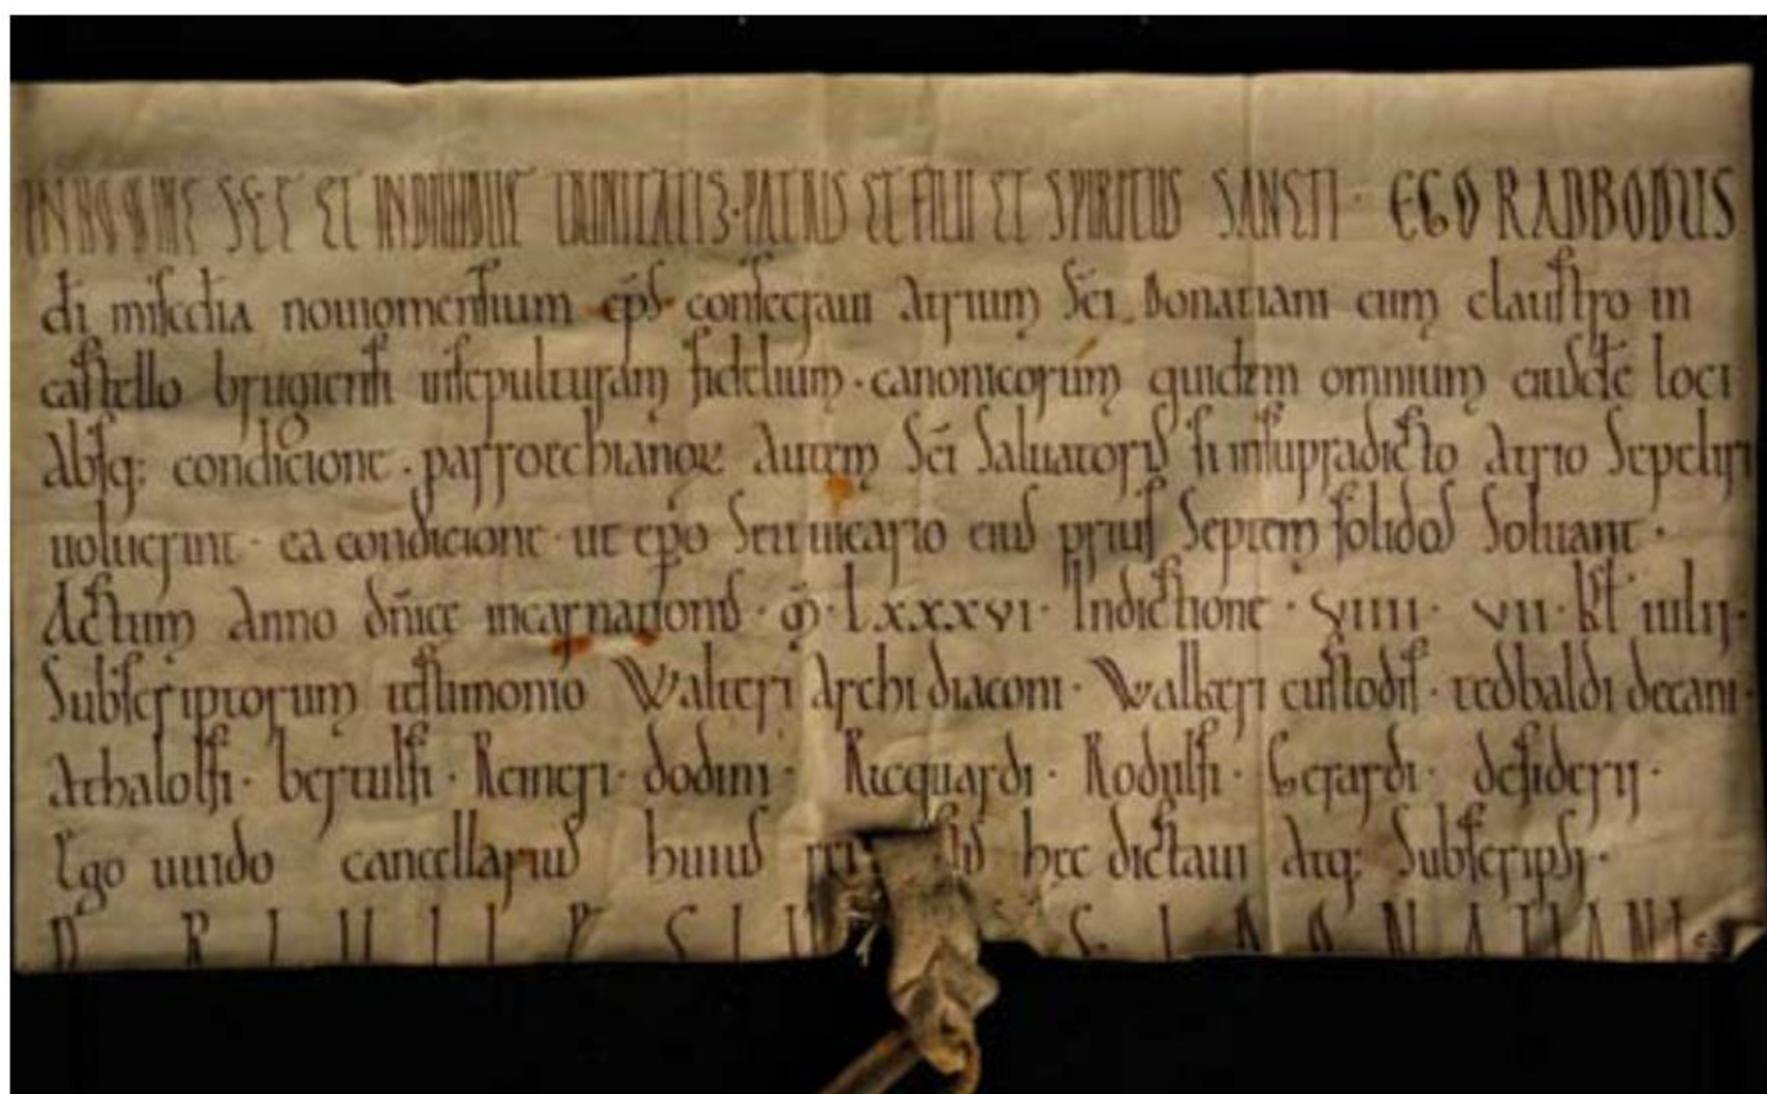 IN NOMINE SCE ET INDIVIDUE TRINITATIS · PATRIS ET FILII ET SPIRITUS SANCTI · EGO RADBODUS
di miscdia nouiomensium eps consecraui atrium Sci Donatiani cum claustro in
castello brugiensi insepulturam fidelium · canonicorum quidem omnium eiusde loci
absq; condicione · parrochianoꝝ autem Sci Saluatoris si insupradicto atrio Sepeliri
uoluerint · ea condicione · ut epo Seu uicario eius prius Septem solidos Soluant ·
Actum Anno dnice incarnationis · M · Lxxxvi · Indictione · viiii · vii · kł iulij ·
Subscriptorum testimonio Walteri Archidiaconi · Walteri custodis · tedbaldi decani ·
Athalolfi · bertulfi · Remeri · dodini · Ricquardi · Rodulfi · Gerardi · desiderij ·
Ego uuido cancellarius huius hec dictaui atq; Subscripsi ·